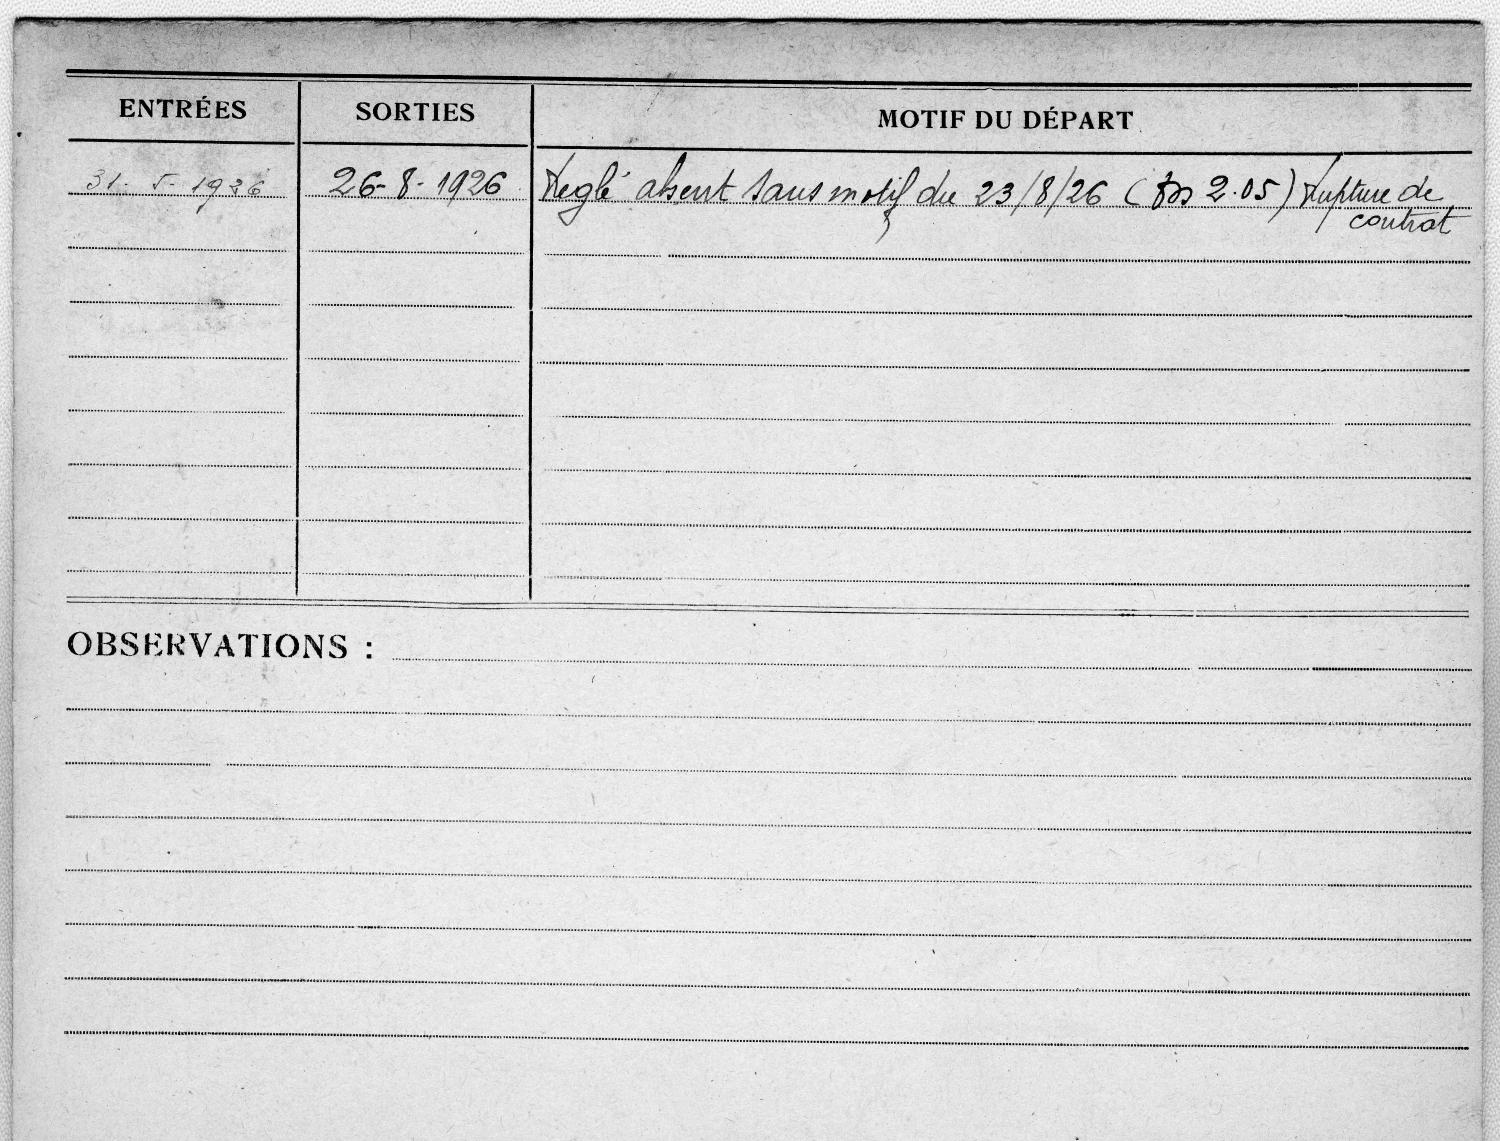 ENTRÉES SORTIES MOTIF DU DÉPART
31- 5- 1926 26-8-1926 Reglé absent sans motif du 23/8/26 ( 2.05) Rupture de
contrat
OBSERVATIONS :